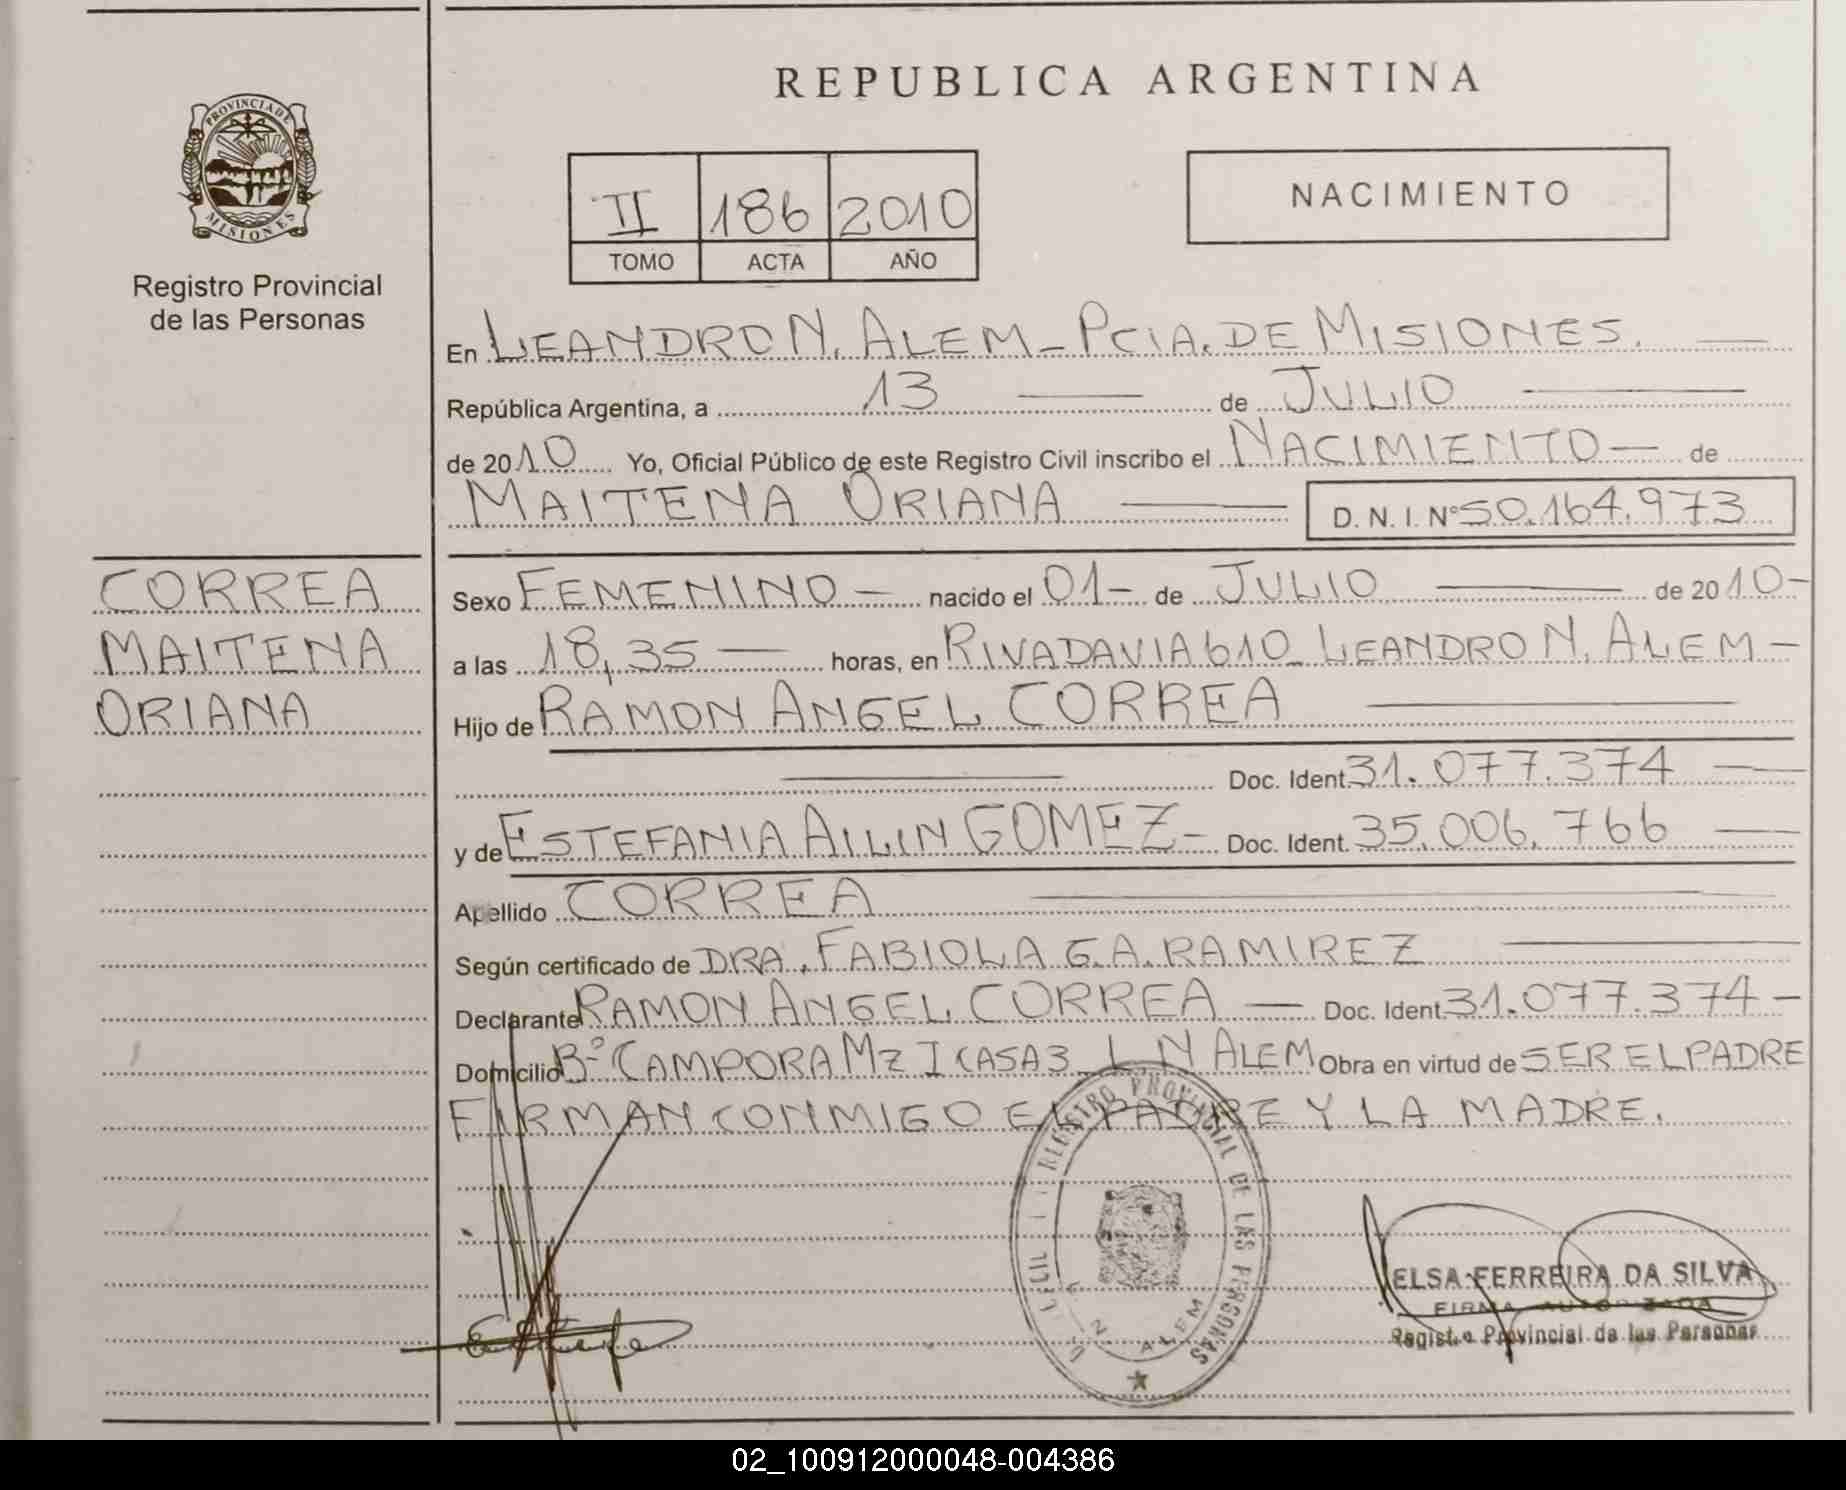 REPUBLICA ARGENTINA
PROVINCIA DE
MISIONES
Registro Provincial
de las Personas
II 186 2010
TOMO ACTA AÑO
NACIMIENTO
En LEANDRO N. ALEM - PCIA. DE MISIONES.
República Argentina, a 13 de JULIO
de 2010 Yo, Oficial Público de este Registro Civil inscribo el NACIMIENTO de
MAITENA ORIANA D. N. I. Nº 50.164.973
CORREA
MAITENA
ORIANA
Sexo FEMENINO nacido el 01 - de JULIO de 2010 -
a las 18,35 horas, en RIVADAVIA 610 - LEANDRO N. ALEM -
Hijo de RAMON ANGEL CORREA
Doc. Ident. 31.077.374
y de ESTEFANIA AILIN GOMEZ - Doc. Ident. 35.006.766
Apellido CORREA
Según certificado de DRA. FABIOLA G.A. RAMIREZ
Declarante RAMON ANGEL CORREA Doc. Ident. 31.077.374 -
Domicilio Bº CAMPORA MZ I CASA 3 L N ALEM Obra en virtud de SER EL PADRE
FIRMAN CONMIGO EL PADRE Y LA MADRE.
REGISTRO PROVINCIAL DE LAS PERSONAS
L. N. ALEM
ELSA FERREIRA DA SILVA
FIRMA AUTORIZADA
Registro Provincial de las Personas
02_100912000048-004386